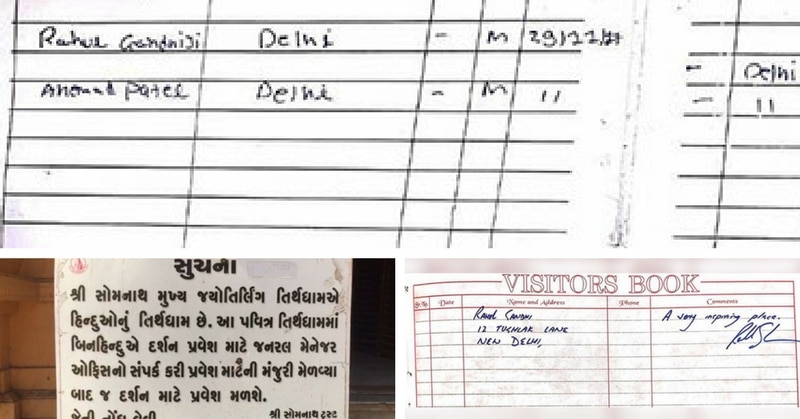 Rahul Gandhiji Delhi - M 29/11/17
Ahemad Patel Delhi - M 11
- Delhi
- 11
સુચના
શ્રી સોમનાથ મુખ્ય જયોતિર્લિંગ તિર્થધામએ
હિન્દુઓનું તિર્થધામ છે. આ પવિત્ર તિર્થધામમાં
બિનહિન્દુએ દર્શન પ્રવેશ માટે જનરલ મેનેજર
ઓફિસનો સંપર્ક કરી પ્રવેશ માટૈની મંજુરી મેળવ્યા
બાદ જ દર્શન માટે પ્રવેશ મળશે.
શ્રી સોમનાથ ટ્રસ્ટ
VISITORS BOOK
Sr. No. Date Name and Address Phone Comments
Rahul Gandhi A very inspiring place.
12 TUGHLAK LANE
NEW DELHI,